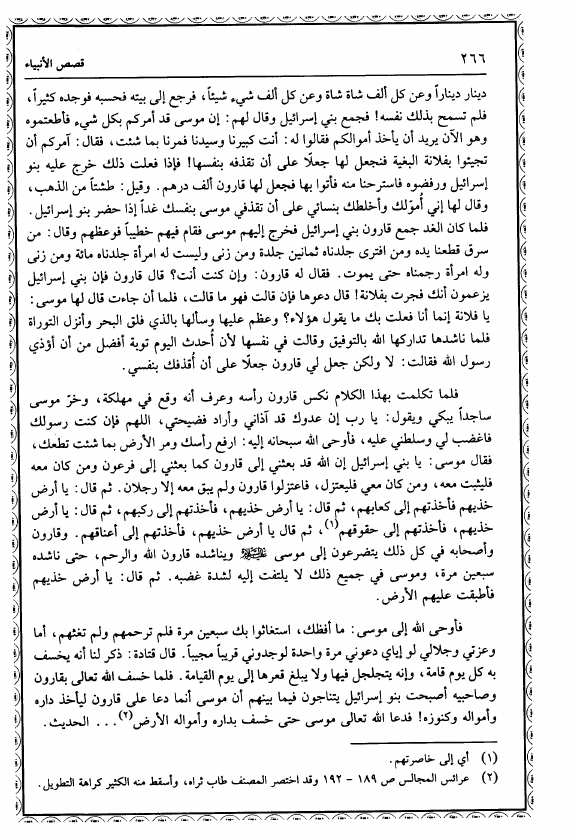 ٢٦٦
قصص الأنبياء
دينار ديناراً وعن كل ألف شاة شاة وعن كل ألف شيء شيئاً، فرجع إلى بيته فحسبه فوجده كثيراً،
فلم تسمح بذلك نفسه! فجمع بني إسرائيل وقال لهم: إن موسى قد أمركم بكل شيء فأطعتموه
وهو الآن يريد أن يأخذ أموالكم فقالوا له: أنت كبيرنا وسيدنا فمرنا بما شئت، فقال: آمركم أن
تجيئوا بفلانة البغية فنجعل لها جعلًا على أن تقذفه بنفسها! فإذا فعلت ذلك خرج عليه بنو
إسرائيل ورفضوه فاسترحنا منه فأتوا بها فجعل لها قارون ألف درهم. وقيل: طشتاً من الذهب،
وقال لها إني أُموّلك وأخلطك بنسائي على أن تقذفي موسى بنفسك غداً إذا حضر بنو إسرائيل.
فلما كان الغد جمع قارون بني إسرائيل فخرج إليهم موسى فقام فيهم خطيباً فوعظهم وقال: من
سرق قطعنا يده ومن افترى جلدناه ثمانين جلدة ومن زنى وليست له امرأة جلدناه مائة ومن زنى
وله امرأة رجمناه حتى يموت. فقال له قارون: وإن كنت أنت؟ قال قارون فإن بني إسرائيل
يزعمون أنك فجرت بفلانة! قال دعوها فإن قالت فهو ما قالت، فلما أن جاءت قال لها موسى:
يا فلانة إنما أنا فعلت بك ما يقول هؤلاء؟ وعظم عليها وسألها بالذي فلق البحر وأنزل التوراة
فلما ناشدها تداركها الله بالتوفيق وقالت في نفسها لأن أُحدث اليوم توبة أفضل من أن أؤذي
رسول الله فقالت: لا ولكن جعل لي قارون جعلًا على أن أُقذفك بنفسي.
فلما تكلمت بهذا الكلام نكس قارون رأسه وعرف أنه وقع في مهلكة، وخرّ موسى
ساجداً يبكي ويقول: يا رب إن عدوك قد آذاني وأراد فضيحتي، اللهم فإن كنت رسولك
فاغضب لي وسلطني عليه، فأوحى الله سبحانه إليه: ارفع رأسك ومر الأرض بما شئت تطعك،
فقال موسى: يا بني إسرائيل إن الله قد بعثني إلى قارون كما بعثني إلى فرعون ومن كان معه
فليثبت معه، ومن كان معي فليعتزل، فاعتزلوا قارون ولم يبق معه إلا رجلان. ثم قال: يا أرض
خذيهم فأخذتهم إلى كعابهم، ثم قال: يا أرض خذيهم، فأخذتهم إلى ركبهم، ثم قال: يا أرض
خذيهم، فأخذتهم إلى حقوقهم(١)، ثم قال يا أرض خذيهم، فأخذتهم إلى أعناقهم. وقارون
وأصحابه في كل ذلك يتضرعون إلى موسى ﷺ ويناشده قارون الله والرحم، حتى ناشده
سبعين مرة، وموسى في جميع ذلك لا يلتفت إليه لشدة غضبه. ثم قال: يا أرض خذيهم
فأطبقت عليهم الأرض.
فأوحى الله إلى موسى: ما أفظك، استغاثوا بك سبعين مرة فلم ترحمهم ولم تغثهم، أما
وعزتي وجلالي لو إياي دعوني مرة واحدة لوجدوني قريباً مجيباً. قال قتادة: ذكر لنا أنه يخسف
به كل يوم قامة، وإنه يتجلجل فيها ولا يبلغ قعرها إلى يوم القيامة. فلما خسف الله تعالى بقارون
وصاحبيه أصبحت بنو إسرائيل يتناجون فيما بينهم أن موسى أنما دعا على قارون ليأخذ داره
وأمواله وكنوزه! فدعا الله تعالى موسى حتى خسف بداره وأمواله الأرض(٢)... الحديث.
(١) أي إلى خاصرتهم.
(٢) عرائس المجالس ص ١٨٩ - ١٩٢ وقد اختصر المصنف طاب ثراه، وأسقط منه الكثير كراهة التطويل.